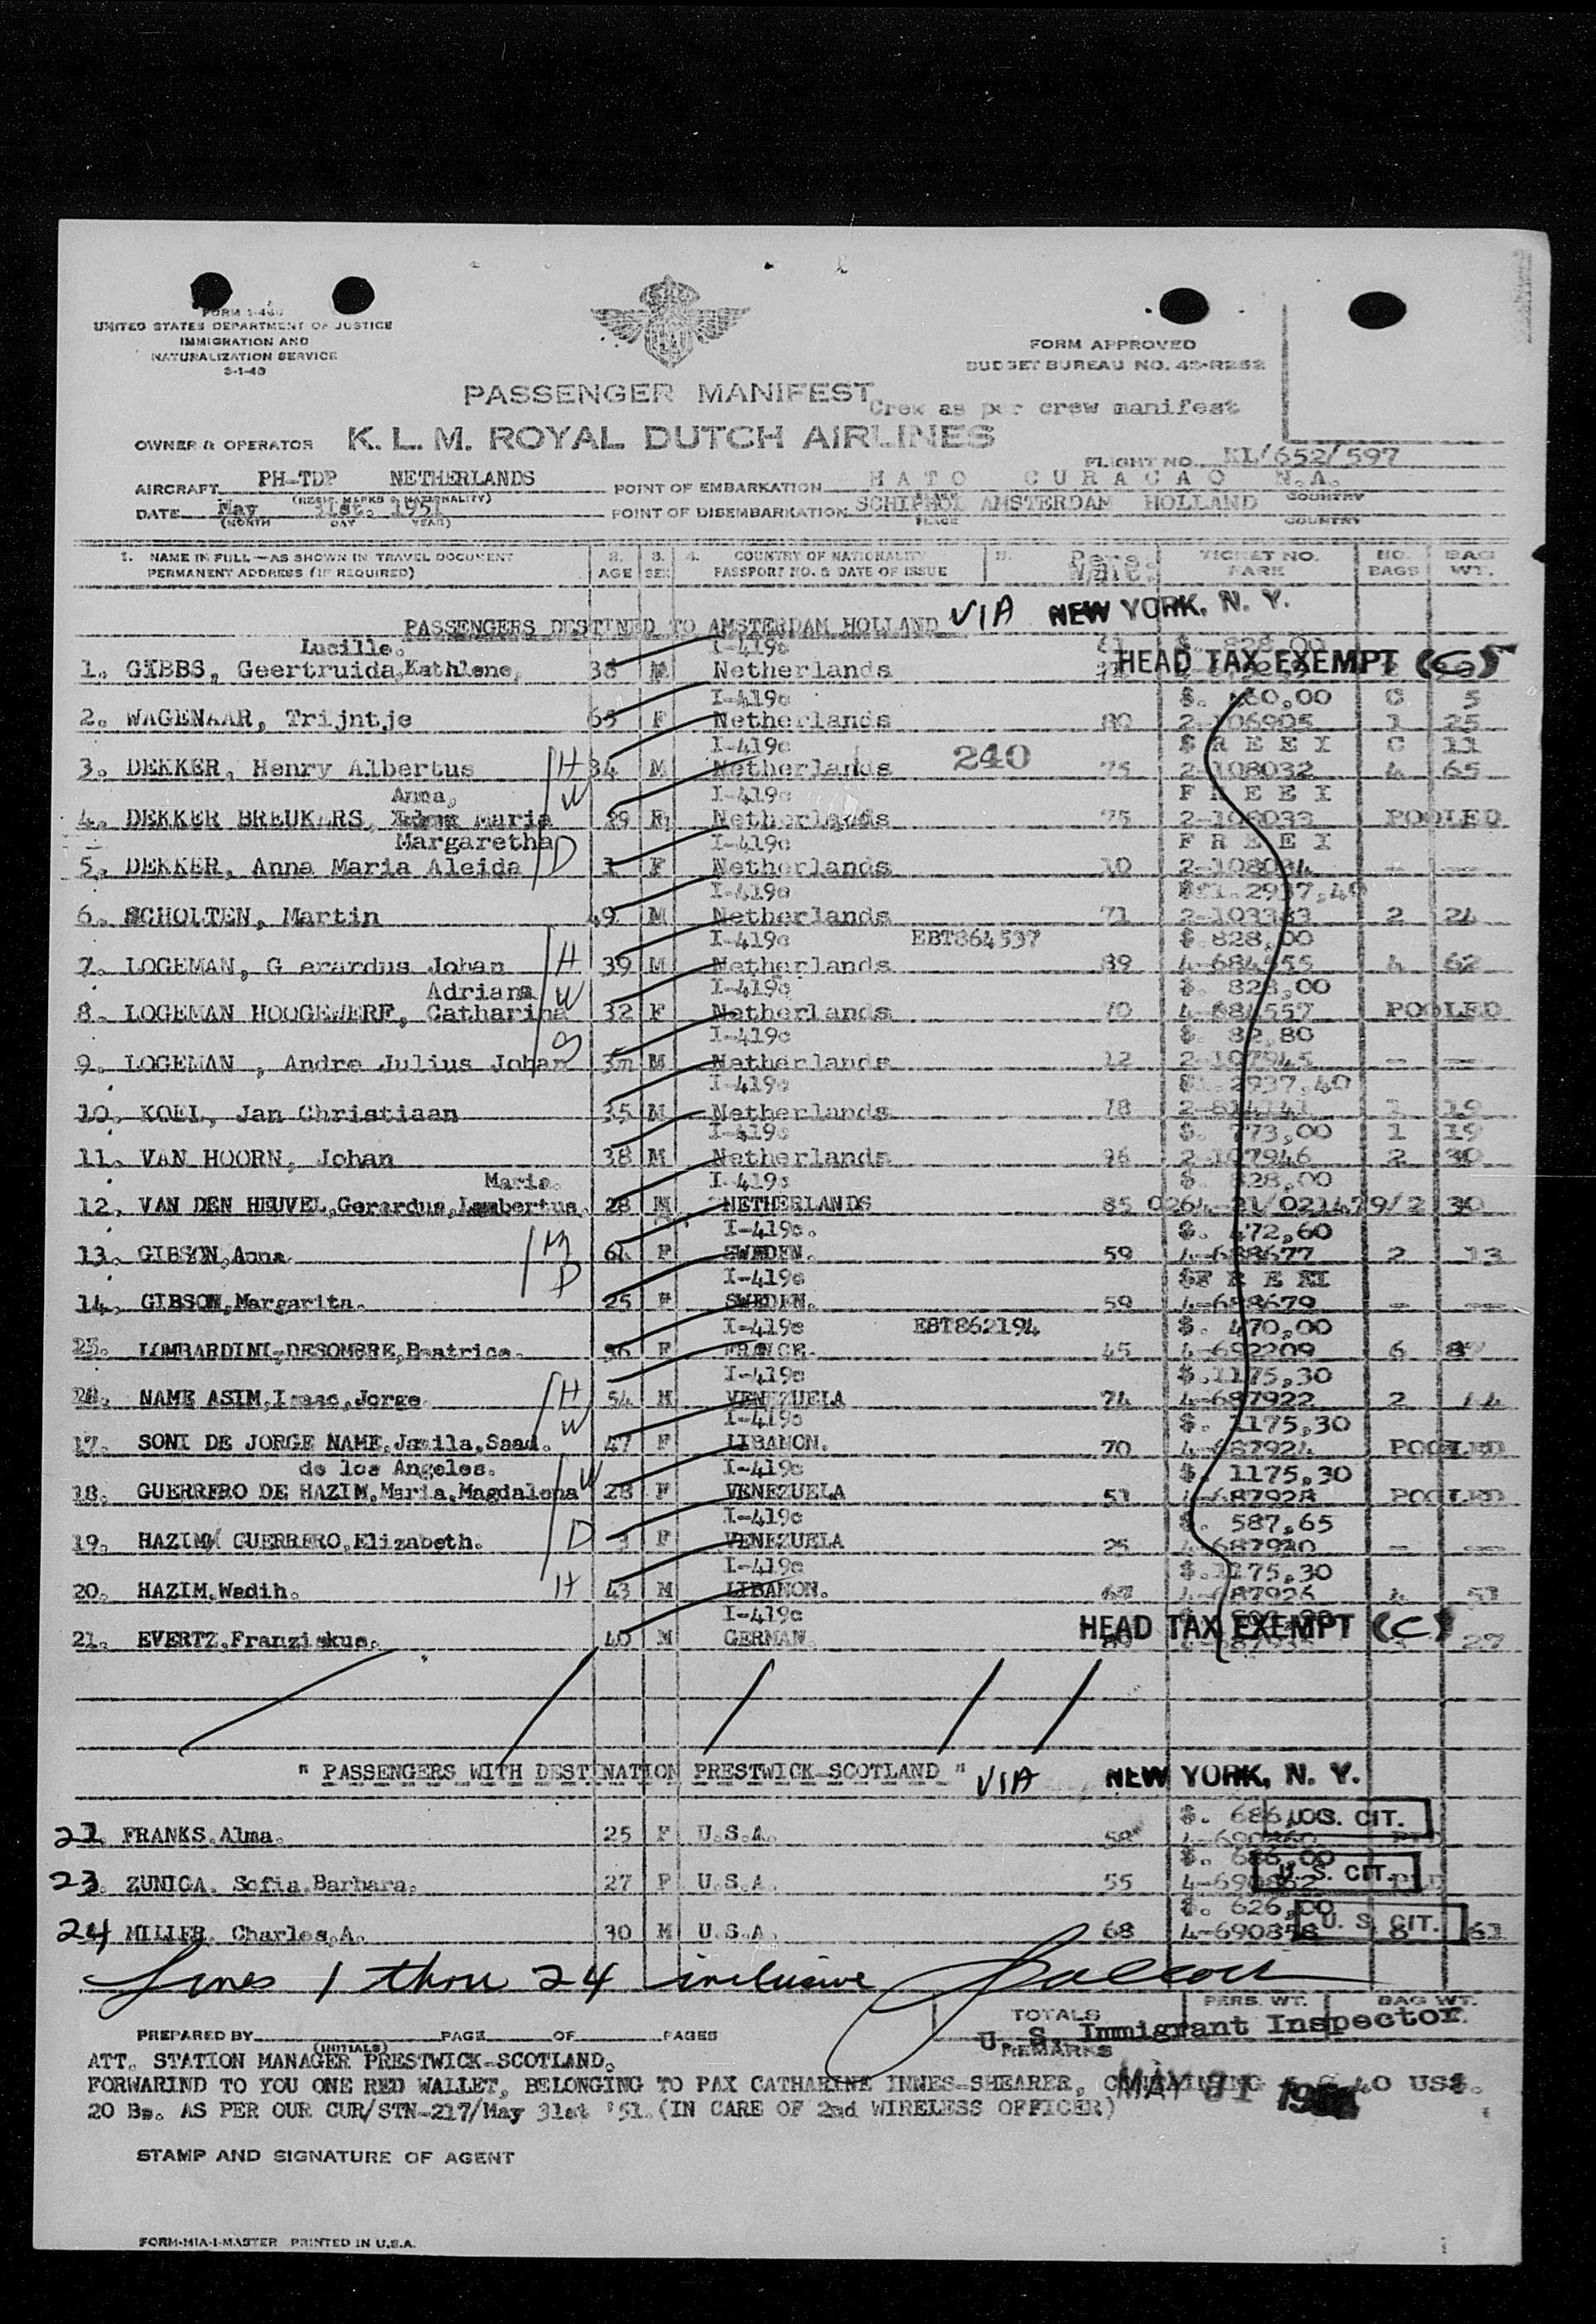 FORM I-466
UNITED STATES DEPARTMENT OF JUSTICE
IMMIGRATION AND
NATURALIZATION SERVICE
FORM APPROVED
BUDGET BUREAU NO. 43-R252
PASSENGER MANIFEST
Crew as per crew manifest
OWNER & OPERATOR K. L. M. ROYAL DUTCH AIRLINES
FLIGHT NO. KL/652/597
AIRCRAFT PH-TDP NETHERLANDS POINT OF EMBARKATION HATO CURACAO N.A.
(REGIS. MARKS & NATIONALITY) COUNTRY
DATE May 31st. 1951 POINT OF DISEMBARKATION SCHIPHOL AMSTERDAM HOLLAND
(MONTH DAY YEAR) PLACE COUNTRY
1. NAME IN FULL—AS SHOWN IN TRAVEL DOCUMENT 2. 3. 4. COUNTRY OF NATIONALITY 5. Pers. TICKET NO. NO. BAG
PERMANENT ADDRESS (IF REQUIRED) AGE SEX PASSPORT NO. & DATE OF ISSUE FARE BAGS WT.
PASSENGERS DESTINED TO AMSTERDAM HOLLAND VIA NEW YORK, N. Y.
Lucille. I-419c 828,00
1. GIBBS, Geertruida,Kathlene, 38 Netherlands HEAD TAX EXEMPT (C)
I-419c C 5
2. WAGENAAR, Trijntje 65 F Netherlands 80 2-106905 1 25
I-419c C 11
3. DEKKER, Henry Albertus H 34 M Netherlands 240 75 2-108032 4 65
Anna, W I-419c F R E E I
4. DEKKER BREUKERS, Maria 29 F Netherlands 75 2-108033 POOLED
Margaretha I-419c F R E E I
5. DEKKER, Anna Maria Aleida D 1 F Netherlands 10 2-108034 - --
I-419c 2937,40
6. SCHOLTEN, Martin 49 M Netherlands 71 2-103383 2 24
I-419c EBT864537 $. 828,00
7. LOGEMAN, G erardus Johan H 39 M Netherlands 89 4-684555 4 62
Adriana W I-419c $. 828,00
8. LOGEMAN HOOGEWERF, Catharina 32 F Netherlands 70 4-684557 POOLED
I-419c $. 82,80
9. LOGEMAN , Andre Julius Johan S 3m M Netherlands 12 2-107945 - --
I-419c 2937,40
10. KOEI, Jan Christiaan 35 M Netherlands 78 1 19
I-419c $. 773,00 1 19
11. VAN HOORN, Johan 38 M Netherlands 96 2-107946 2 30
Marie. I-419c $. 828,00
12. VAN DEN HEUVEL,Gerardus,Lambertus. 28 M NETHERLANDS 85 0264-21/021479/2 30
I-419c. $. 472,60
13. GIBSON,Anna. M 64 F SWEDEN. 59 4-688677 2 13
D I-419c
14. GIBSON,Margarita. 25 F SWEDEN. 59 4-688679 - --
I-419c EBT862194 $. 470,00
LOMBARDINI-DESOMBRE,Beatrice. 36 F FRANCE. 45 4-692209 6 87
I-419c $.1175,30
NAME ASIM,Isaac,Jorge. H 54 M VENEZUELA 74 4-687922 2 44
W I-419c $. 1175,30
17. SONI DE JORGE NAME,Jamila,Saad. 47 F LIBANON. 70 4-687924 POOLED
de los Angeles. I-419c $. 1175,30
18. GUERRERO DE HAZIM,Maria,Magdalena W 28 F VENEZUELA 51 4-687928 POOLED
I-419c 587,65
19. HAZIM GUERRERO,Elizabeth. D 3 F VENEZUELA 25 4-687930 - --
I-419c $.1175,30
20. HAZIM,Wadih. H 43 M LIBANON. 67 4-687926 4 51
I-419c
21. EVERTZ,Franziskus. 40 M GERMAN. HEAD TAX EXEMPT (C) 27
" PASSENGERS WITH DESTINATION PRESTWICK-SCOTLAND " VIA NEW YORK, N. Y.
$. 686,00 U. S. CIT.
22. FRANKS,Alma. 25 F U.S.A. 58
$. 686,00
23. ZUNIGA. Sofia.Barbara. 27 F U.S.A. 55 4-690862 U. S. CIT.
$. 626,00
24 MILLER. Charles,A. 30 M U.S.A. 68 4-690858 U. S. CIT. 8 61
Lines 1 thru 24 inclusive
TOTALS PERS. WT. BAG WT.
U. S. Immigrant Inspector.
PREPARED BY PAGE OF PAGES
(INITIALS) REMARKS
ATT. STATION MANAGER PRESTWICK-SCOTLAND.
FORWARIND TO YOU ONE RED WALLET, BELONGING TO PAX CATHARINE INNES-SHEARER, 40 US$.
MAY 31
20 Bs. AS PER OUR CUR/STN-217/May 31st '51.(IN CARE OF 2nd WIRELESS OFFICER)
STAMP AND SIGNATURE OF AGENT
FORM-MIA-1-MASTER PRINTED IN U.S.A.